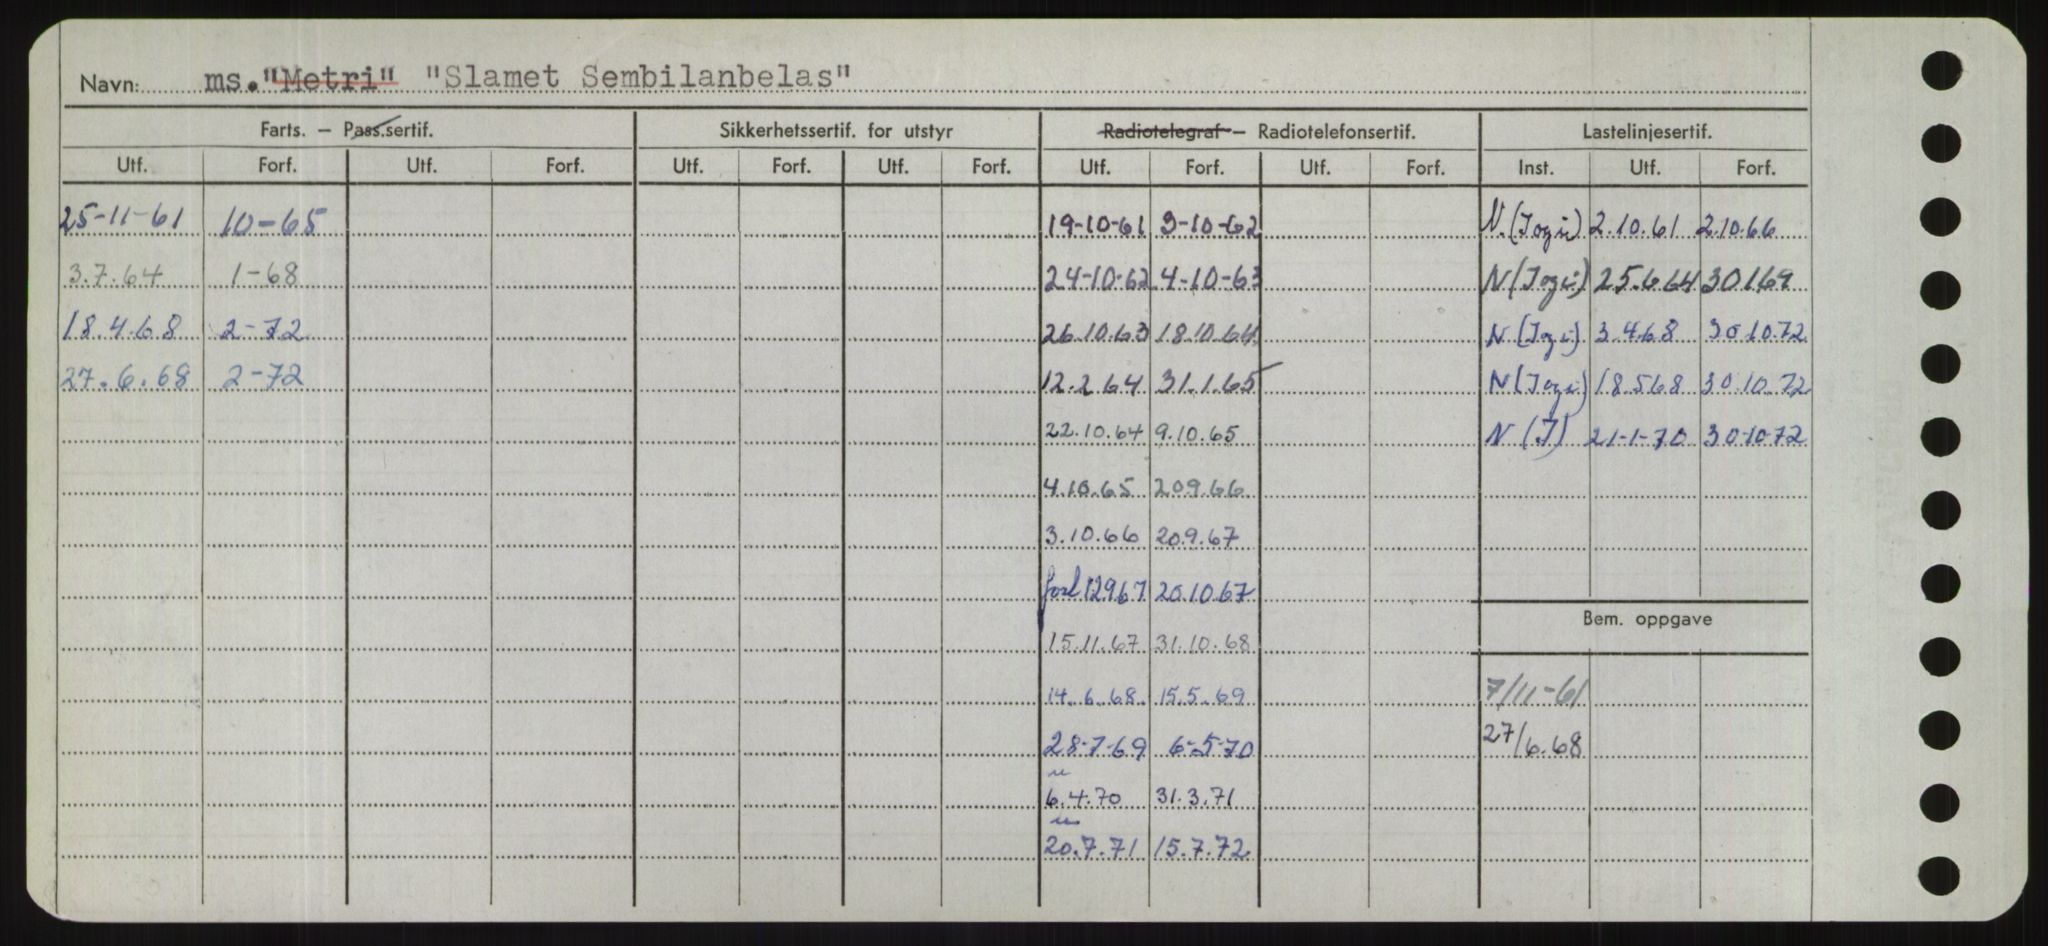 Navn: ms. "Metri" "Slamet Sembilanbelas"
Farts. – Pass.sertif. Sikkerhetssertif. for utstyr Radiotelegraf – Radiotelefonsertif. Lastelinjesertif.
Utf. Forf. Utf. Forf. Utf. Forf. Utf. Forf. Utf. Forf. Utf. Forf. Inst. Utf. Forf.
25-11-61 10-65 19-10-61 3-10-62 N. 2.10.61 2.10.66
3.7.64 1-68 24-10-62 4-10-63 N 25.6.64 30.1.69
18.4.68 2-72 26.10.63 18.10.64 N 3.4.68 30.10.72
27.6.68 2-72 12.2.64 31.1.65 N 18.5.68 30.10.72
22.10.64 9.10.65 N (J) 21-1-70 30-10-72
4.10.65 20.9.66
3.10.66 20.9.67
forl 12967 20.10.67
Bem. oppgave
15.11.67 31.10.68
14.6.68. 15.5.69 7/11-61
28-7-69 6-5-70 27/6.68
6.4.70 31.3.71
20.7.71 15.7.72